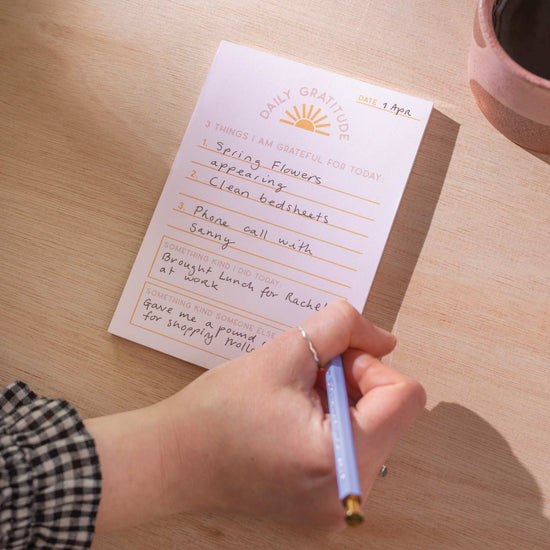 DAILY GRATITUDE
DATE 1 Apr
3 THINGS I AM GRATEFUL FOR TODAY:
1. Spring Flowers
appearing
2. Clean bedsheets
3. Phone call with
Sanny
SOMETHING KIND I DID TODAY:
Brought Lunch for Rachel
at work
SOMETHING KIND SOMEONE ELSE
Gave me a pound
for shopping